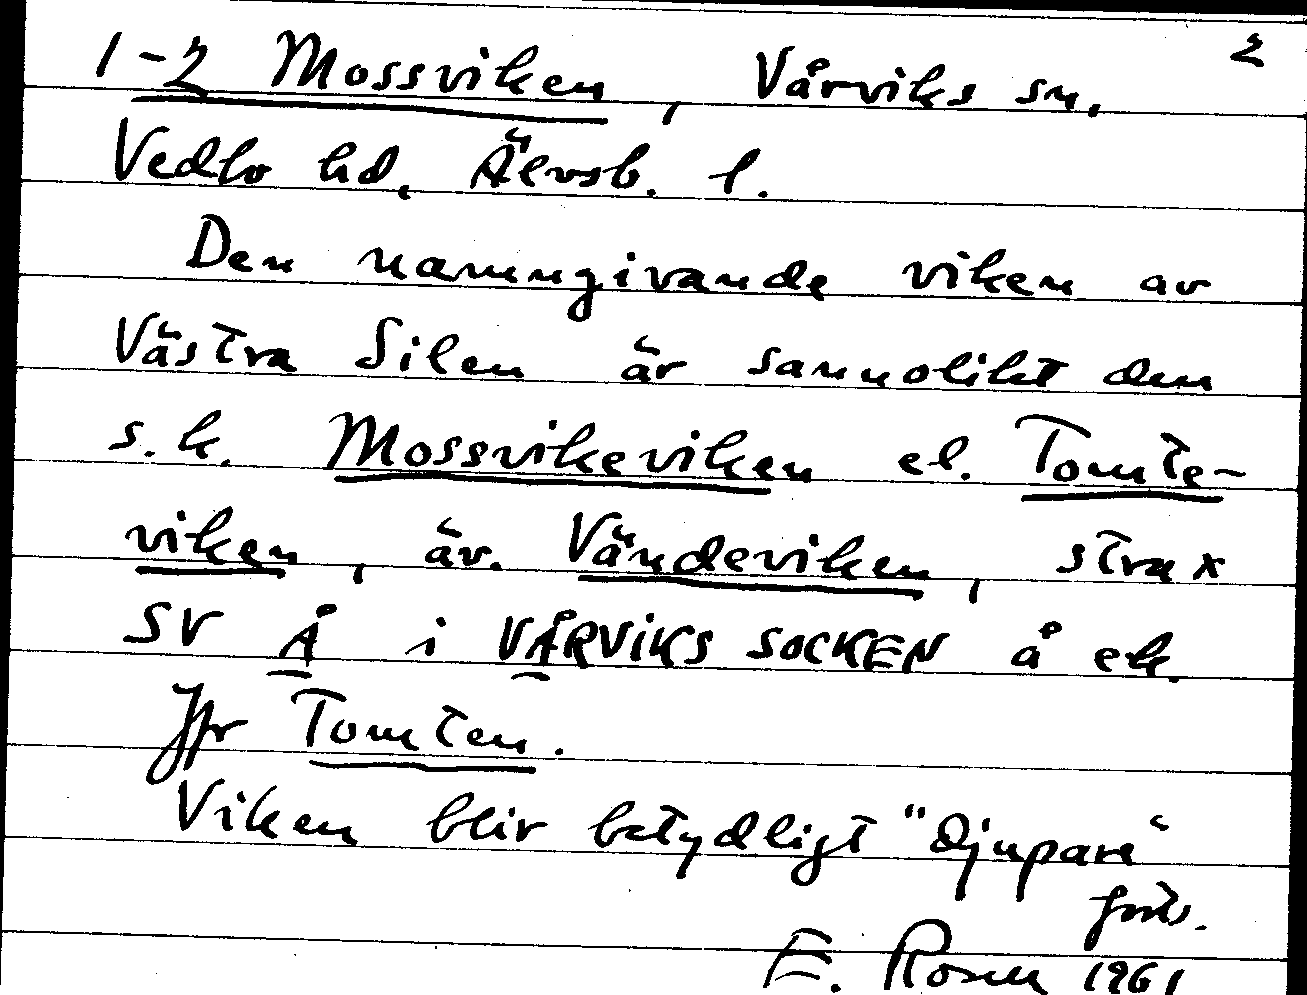 2
1-2 Mossviken, Vårviks sn,
Vedbo hd, Älvsb. l.
Den namngivande viken av
Västra Silen är sannolikt den
s.k. Mossvikeviken el. Tomte-
viken, äv. Vändeviken, strax
SV Å i VÅRVIKS SOCKEN å ek.
Jfr Tomten.
Viken blir betydligt "djupare"
forts.
E. Rosell 1961